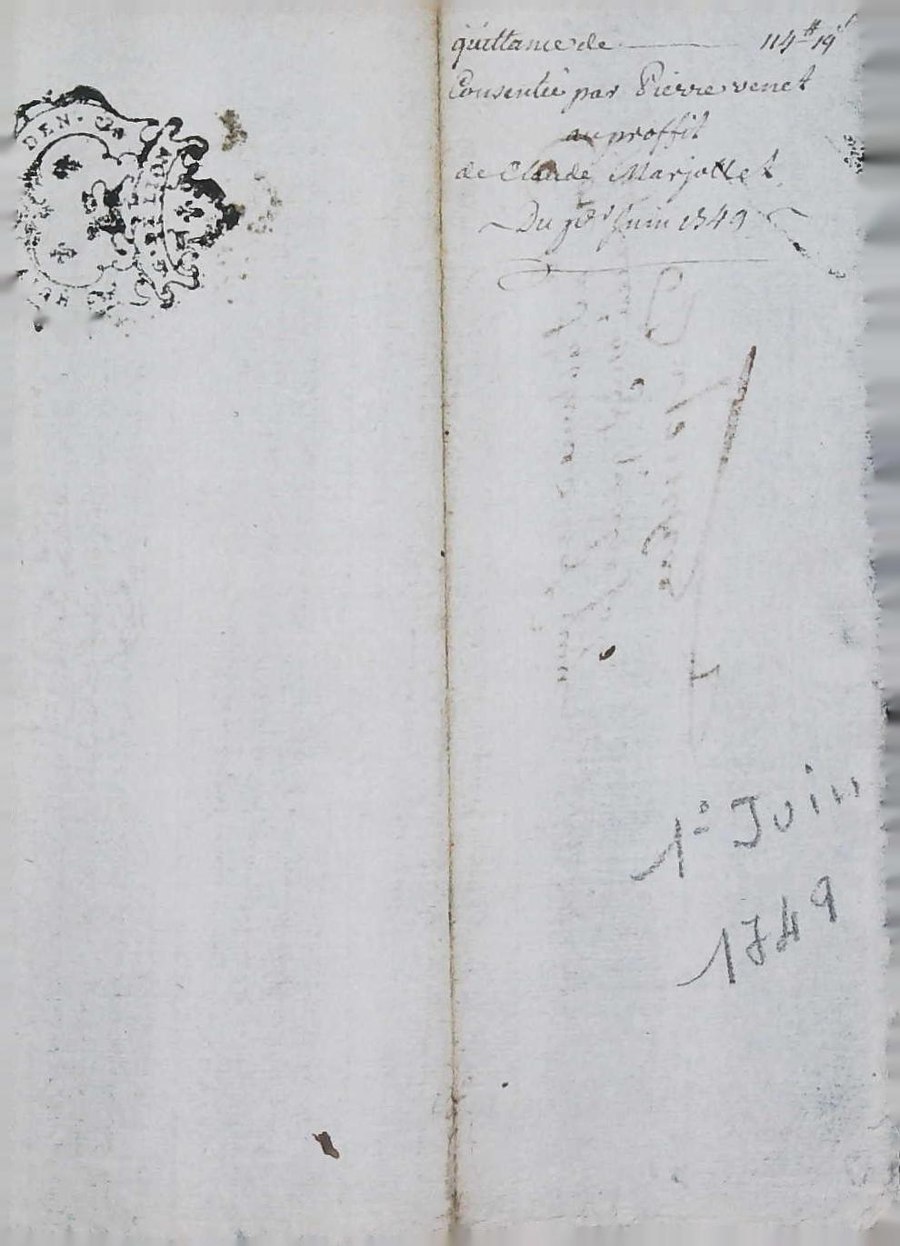 DEN.
quittance de 114# 19s
Consentie par Pierre venet
au proffit
de Claude Marjollet
Du 1er Juin 1749
1º Juin
1749